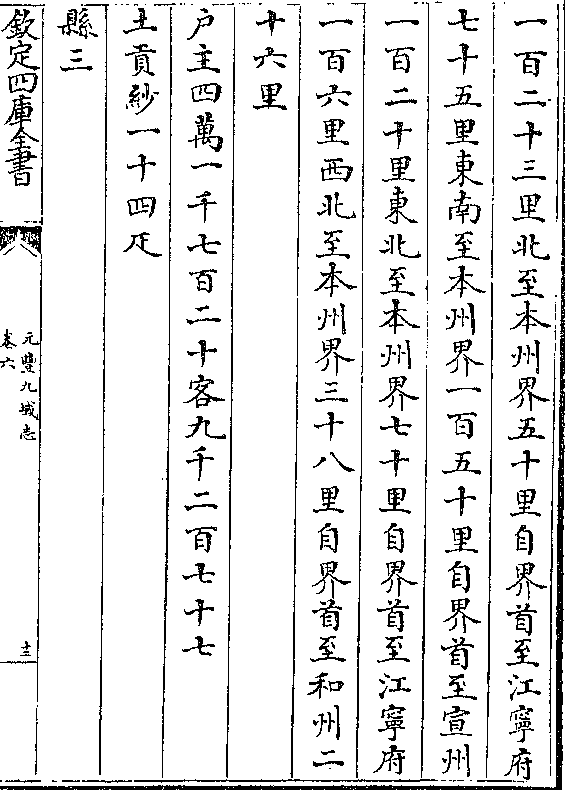 一百二十三里北至本州界五十里自界首至江寧府
七十五里東南至本州界一百五十里自界首至宣州
一百二十里東北至本州界七十里自界首至江寧府
一百六里西北至本州界三十八里自界首至和州二
十六里
户主四萬一千七百二十客九千二百七十七
土貢紗一十四疋
縣三
欽定四庫全書
元豐九域志
卷六